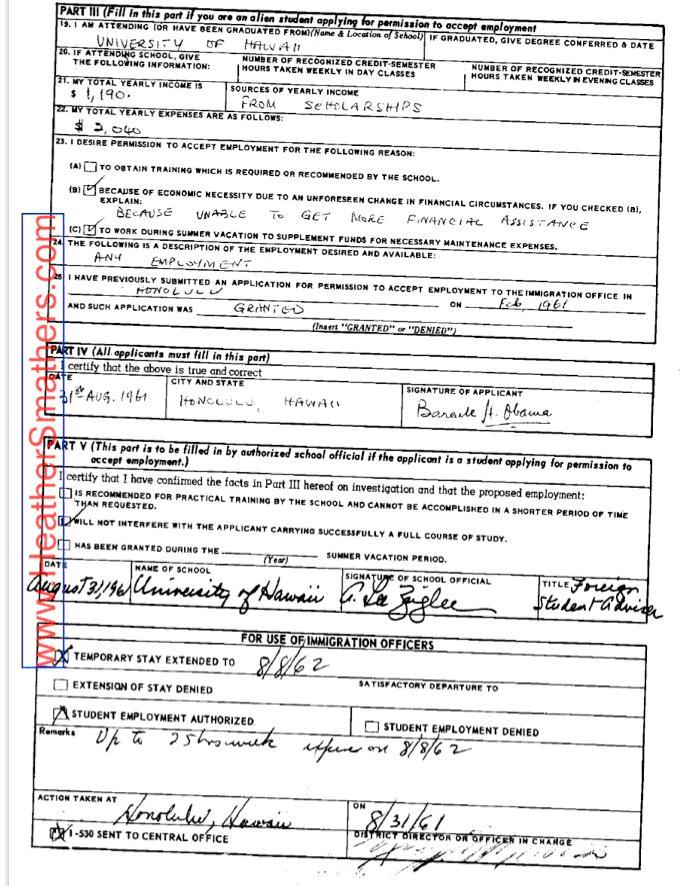 PART III (Fill in this part if you are an alien student applying for permission to accept employment
19. I AM ATTENDING (OR HAVE BEEN GRADUATED FROM)(Name & Location of School) IF GRADUATED, GIVE DEGREE CONFERRED & DATE
UNIVERSITY OF HAWAII
20. IF ATTENDING SCHOOL, GIVE THE FOLLOWING INFORMATION:
NUMBER OF RECOGNIZED CREDIT-SEMESTER HOURS TAKEN WEEKLY IN DAY CLASSES
NUMBER OF RECOGNIZED CREDIT-SEMESTER HOURS TAKEN WEEKLY IN EVENING CLASSES
21. MY TOTAL YEARLY INCOME IS
$ 1,190.
SOURCES OF YEARLY INCOME
FROM SCHOLARSHIPS
22. MY TOTAL YEARLY EXPENSES ARE AS FOLLOWS:
$ 2,040
23. I DESIRE PERMISSION TO ACCEPT EMPLOYMENT FOR THE FOLLOWING REASON:
(A) TO OBTAIN TRAINING WHICH IS REQUIRED OR RECOMMENDED BY THE SCHOOL.
(B) BECAUSE OF ECONOMIC NECESSITY DUE TO AN UNFORESEEN CHANGE IN FINANCIAL CIRCUMSTANCES. IF YOU CHECKED (B),
EXPLAIN:
BECAUSE UNABLE TO GET MORE FINANCIAL ASSISTANCE
(C) TO WORK DURING SUMMER VACATION TO SUPPLEMENT FUNDS FOR NECESSARY MAINTENANCE EXPENSES.
24. THE FOLLOWING IS A DESCRIPTION OF THE EMPLOYMENT DESIRED AND AVAILABLE:
ANY EMPLOYMENT
25 I HAVE PREVIOUSLY SUBMITTED AN APPLICATION FOR PERMISSION TO ACCEPT EMPLOYMENT TO THE IMMIGRATION OFFICE IN
HONOLULU ON Feb, 1961
AND SUCH APPLICATION WAS GRANTED
(Insert "GRANTED" or "DENIED")
PART IV (All applicants must fill in this part)
I certify that the above is true and correct
DATE
31st AUG. 1961
CITY AND STATE
HONOLULU, HAWAII
SIGNATURE OF APPLICANT
Barack H. Obama
PART V (This part is to be filled in by authorized school official if the applicant is a student applying for permission to
accept employment.)
I certify that I have confirmed the facts in Part III hereof on investigation and that the proposed employment:
IS RECOMMENDED FOR PRACTICAL TRAINING BY THE SCHOOL AND CANNOT BE ACCOMPLISHED IN A SHORTER PERIOD OF TIME
THAN REQUESTED.
WILL NOT INTERFERE WITH THE APPLICANT CARRYING SUCCESSFULLY A FULL COURSE OF STUDY.
HAS BEEN GRANTED DURING THE SUMMER VACATION PERIOD.
(Year)
DATE
August 31, 1961
NAME OF SCHOOL
University of Hawaii
SIGNATURE OF SCHOOL OFFICIAL
TITLE Foreign
Student Adviser
FOR USE OF IMMIGRATION OFFICERS
TEMPORARY STAY EXTENDED TO 8/8/62
EXTENSION OF STAY DENIED
SATISFACTORY DEPARTURE TO
STUDENT EMPLOYMENT AUTHORIZED
STUDENT EMPLOYMENT DENIED
Remarks
Up to 25 hrs week on 8/8/62
ACTION TAKEN AT
Honolulu, Hawaii
ON
8/31/61
I-530 SENT TO CENTRAL OFFICE
DISTRICT DIRECTOR OR OFFICER IN CHARGE
www.HeatherSmathers.com